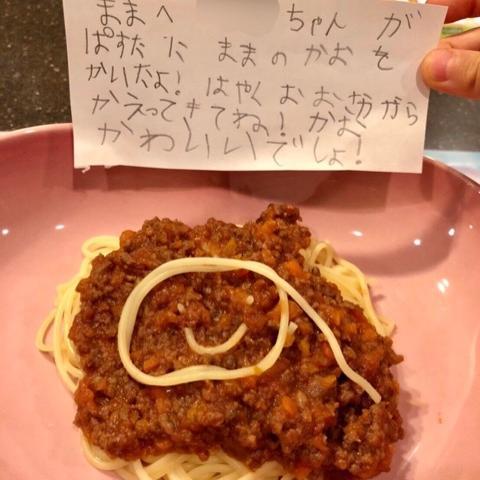 ままへ ちゃん が
ぱすたに ままのかおを
かいたよ! はやく おおさかから
かえってきてね! かお
かわいいでしょ!